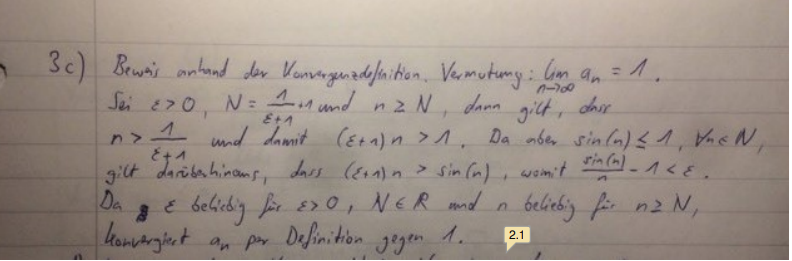 3c) Beweis anhand der Konvergenzdefinition. Vermutung: lim n→∞ an = 1.
Sei ε>0, N = 1/(ε+1) +1 und n ≥ N, dann gilt, dass
n > 1/(ε+1) und damit (ε+1)n > 1. Da aber sin(n) ≤ 1, ∀n∈N,
gilt darüberhinaus, dass (ε+1)n > sin(n), womit sin(n)/n - 1 < ε.
Da ε beliebig für ε>0, N∈R und n beliebig für n≥N,
konvergiert an per Definition gegen 1.
2.1